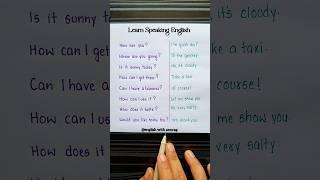 Learn Speaking English
How are you? I'm good. You?
Where are you going? To the
Is it sunny today? No, it's cloudy
How can I get there? Take a taxi
Can I have a banana? Of course!
How can I use it? Let me show you
How does it taste? Very salty
Would you like some tea?
@english with anurag
Is it sunny it's cloudy.
How can I get ke a taxi.
Can I have a course!
How can I us me show you
How does it very salty